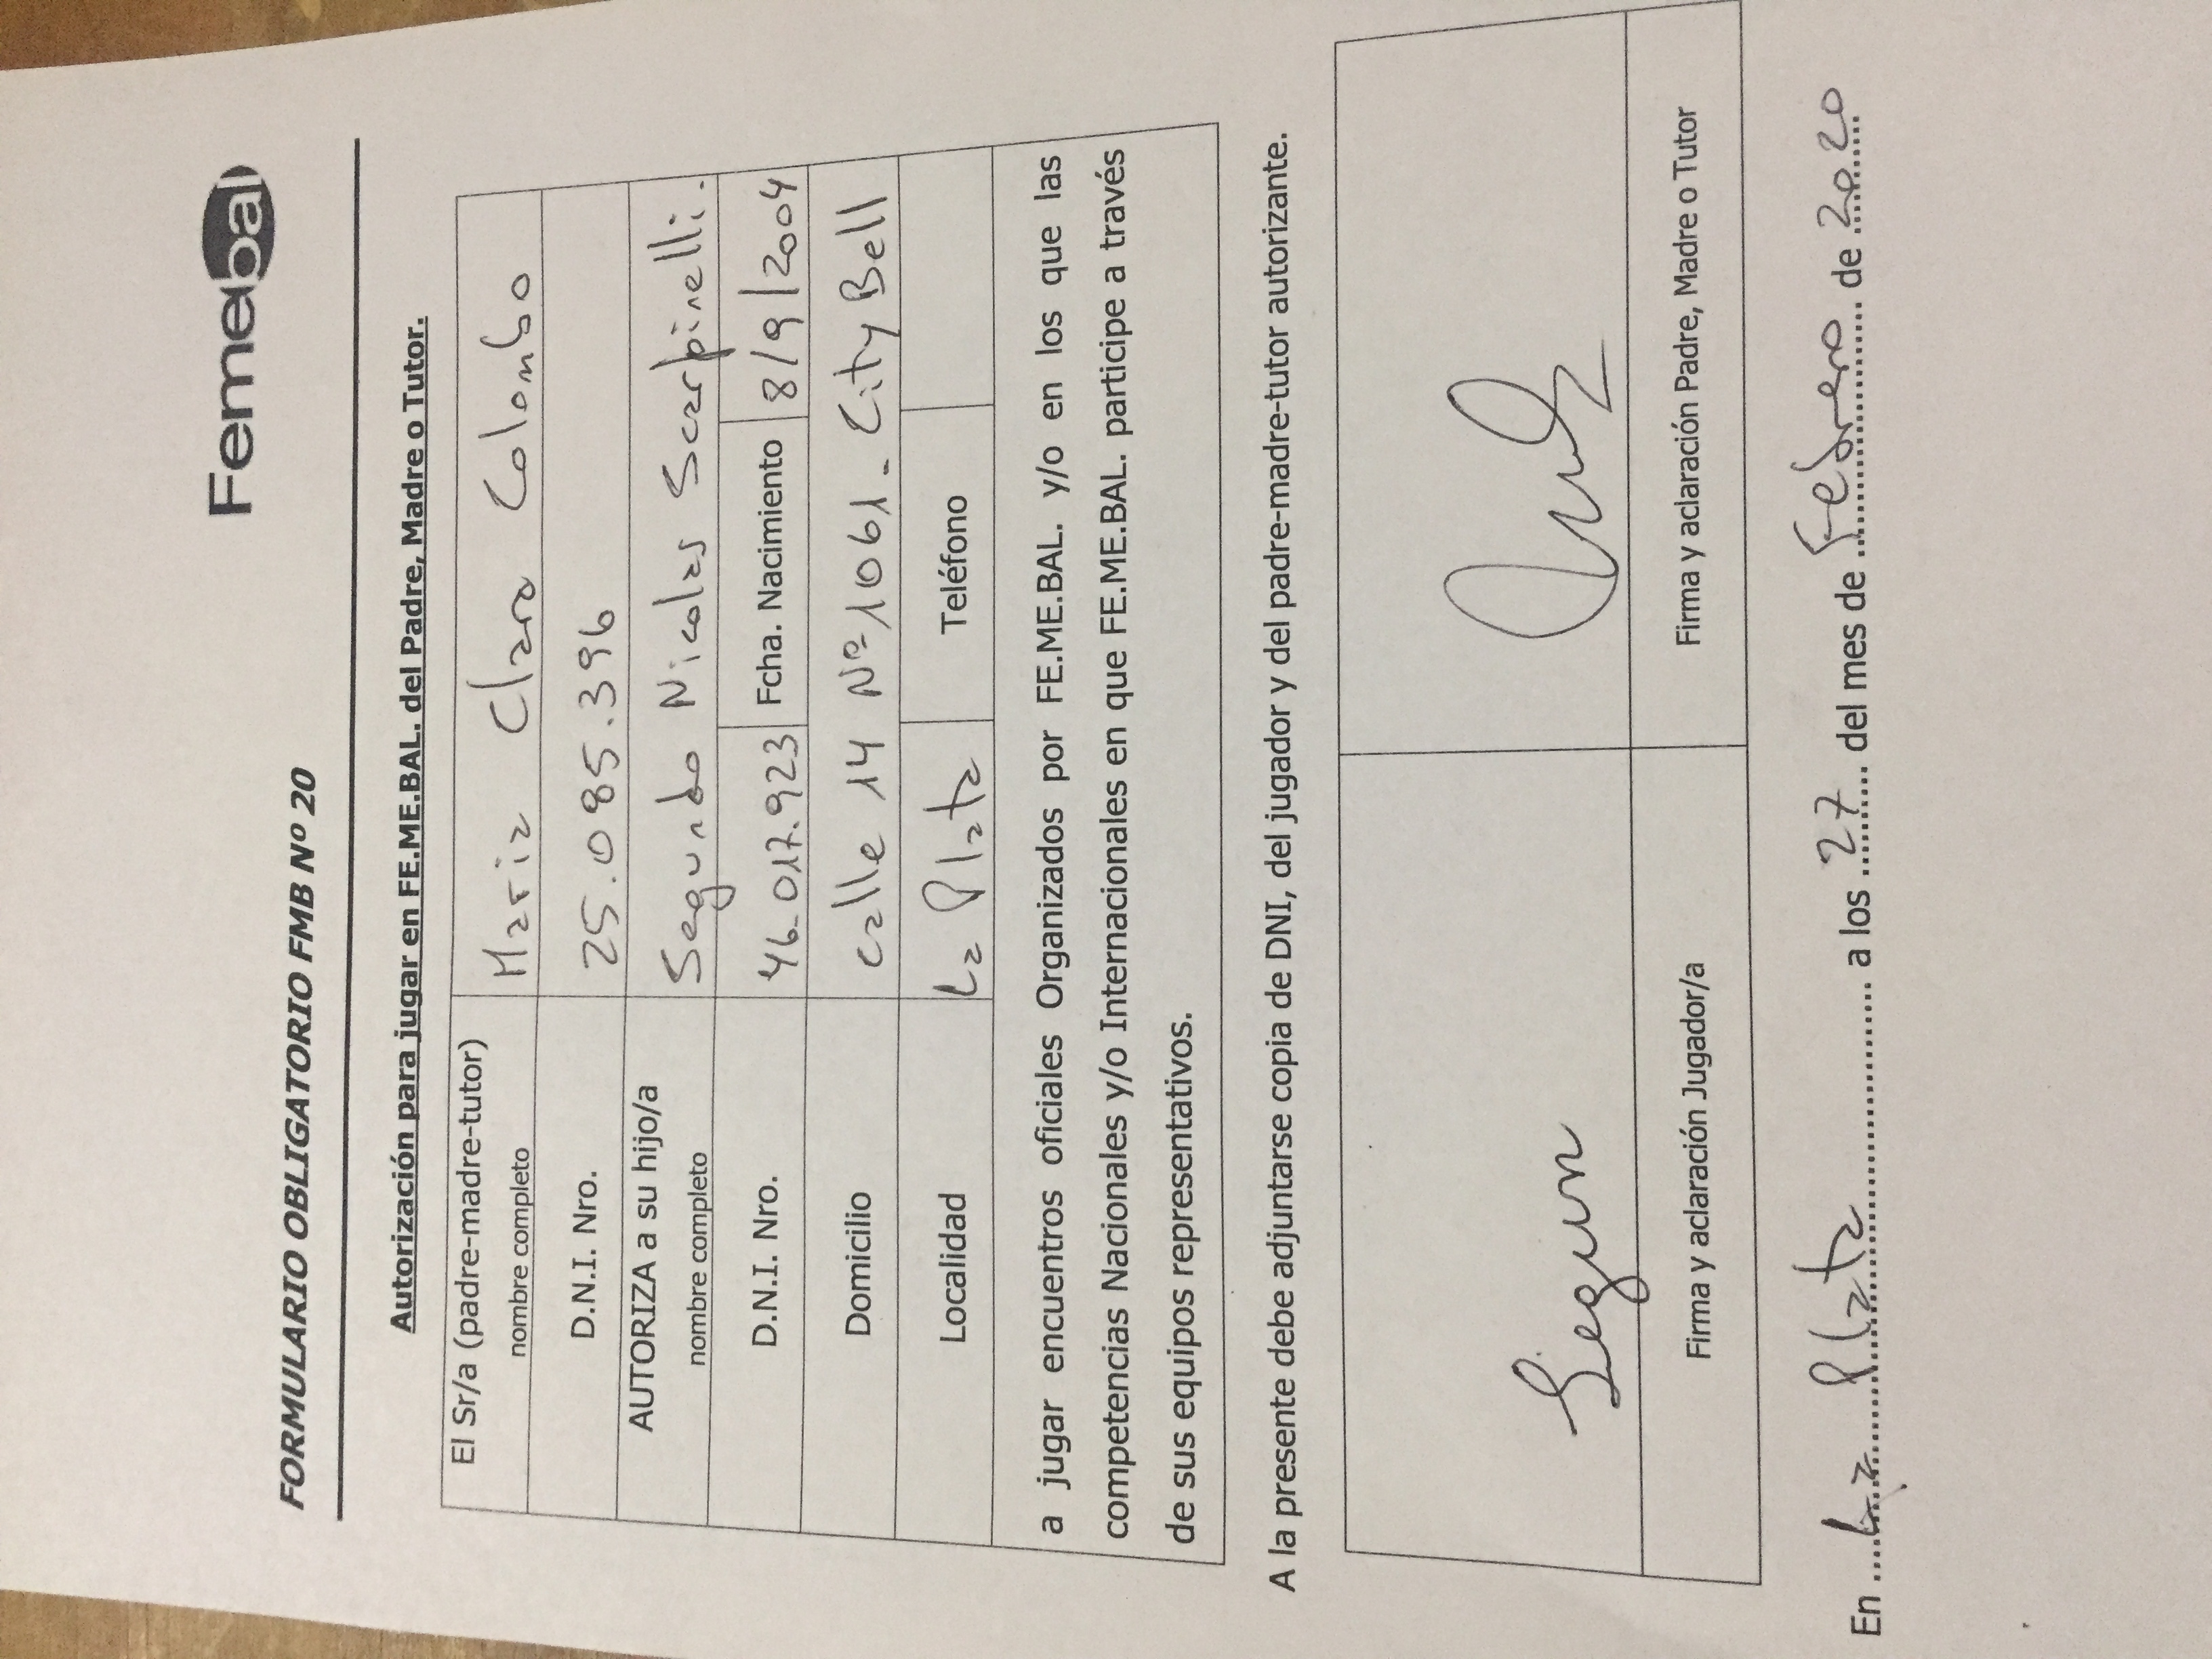 Femebal
FORMULARIO OBLIGATORIO FMB Nº 20
Autorización para jugar en FE.ME.BAL. del Padre, Madre o Tutor.
El Sr/a (padre-madre-tutor) nombre completo Maria Clara Colombo
D.N.I. Nro. 25.085.396
AUTORIZA a su hijo/a nombre completo Segundo Nicolas Scarpinelli.
D.N.I. Nro. 46.017.923 Fcha. Nacimiento 8/9/2004
Domicilio calle 14 Nº 1061 - City Bell
Localidad La Plata Teléfono
a jugar encuentros oficiales Organizados por FE.ME.BAL. y/o en los que las
competencias Nacionales y/o Internacionales en que FE.ME.BAL. participe a través
de sus equipos representativos.
A la presente debe adjuntarse copia de DNI, del jugador y del padre-madre-tutor autorizante.
Segun
Firma y aclaración Jugador/a Firma y aclaración Padre, Madre o Tutor
En La Plata a los 27 del mes de Febrero de 2020